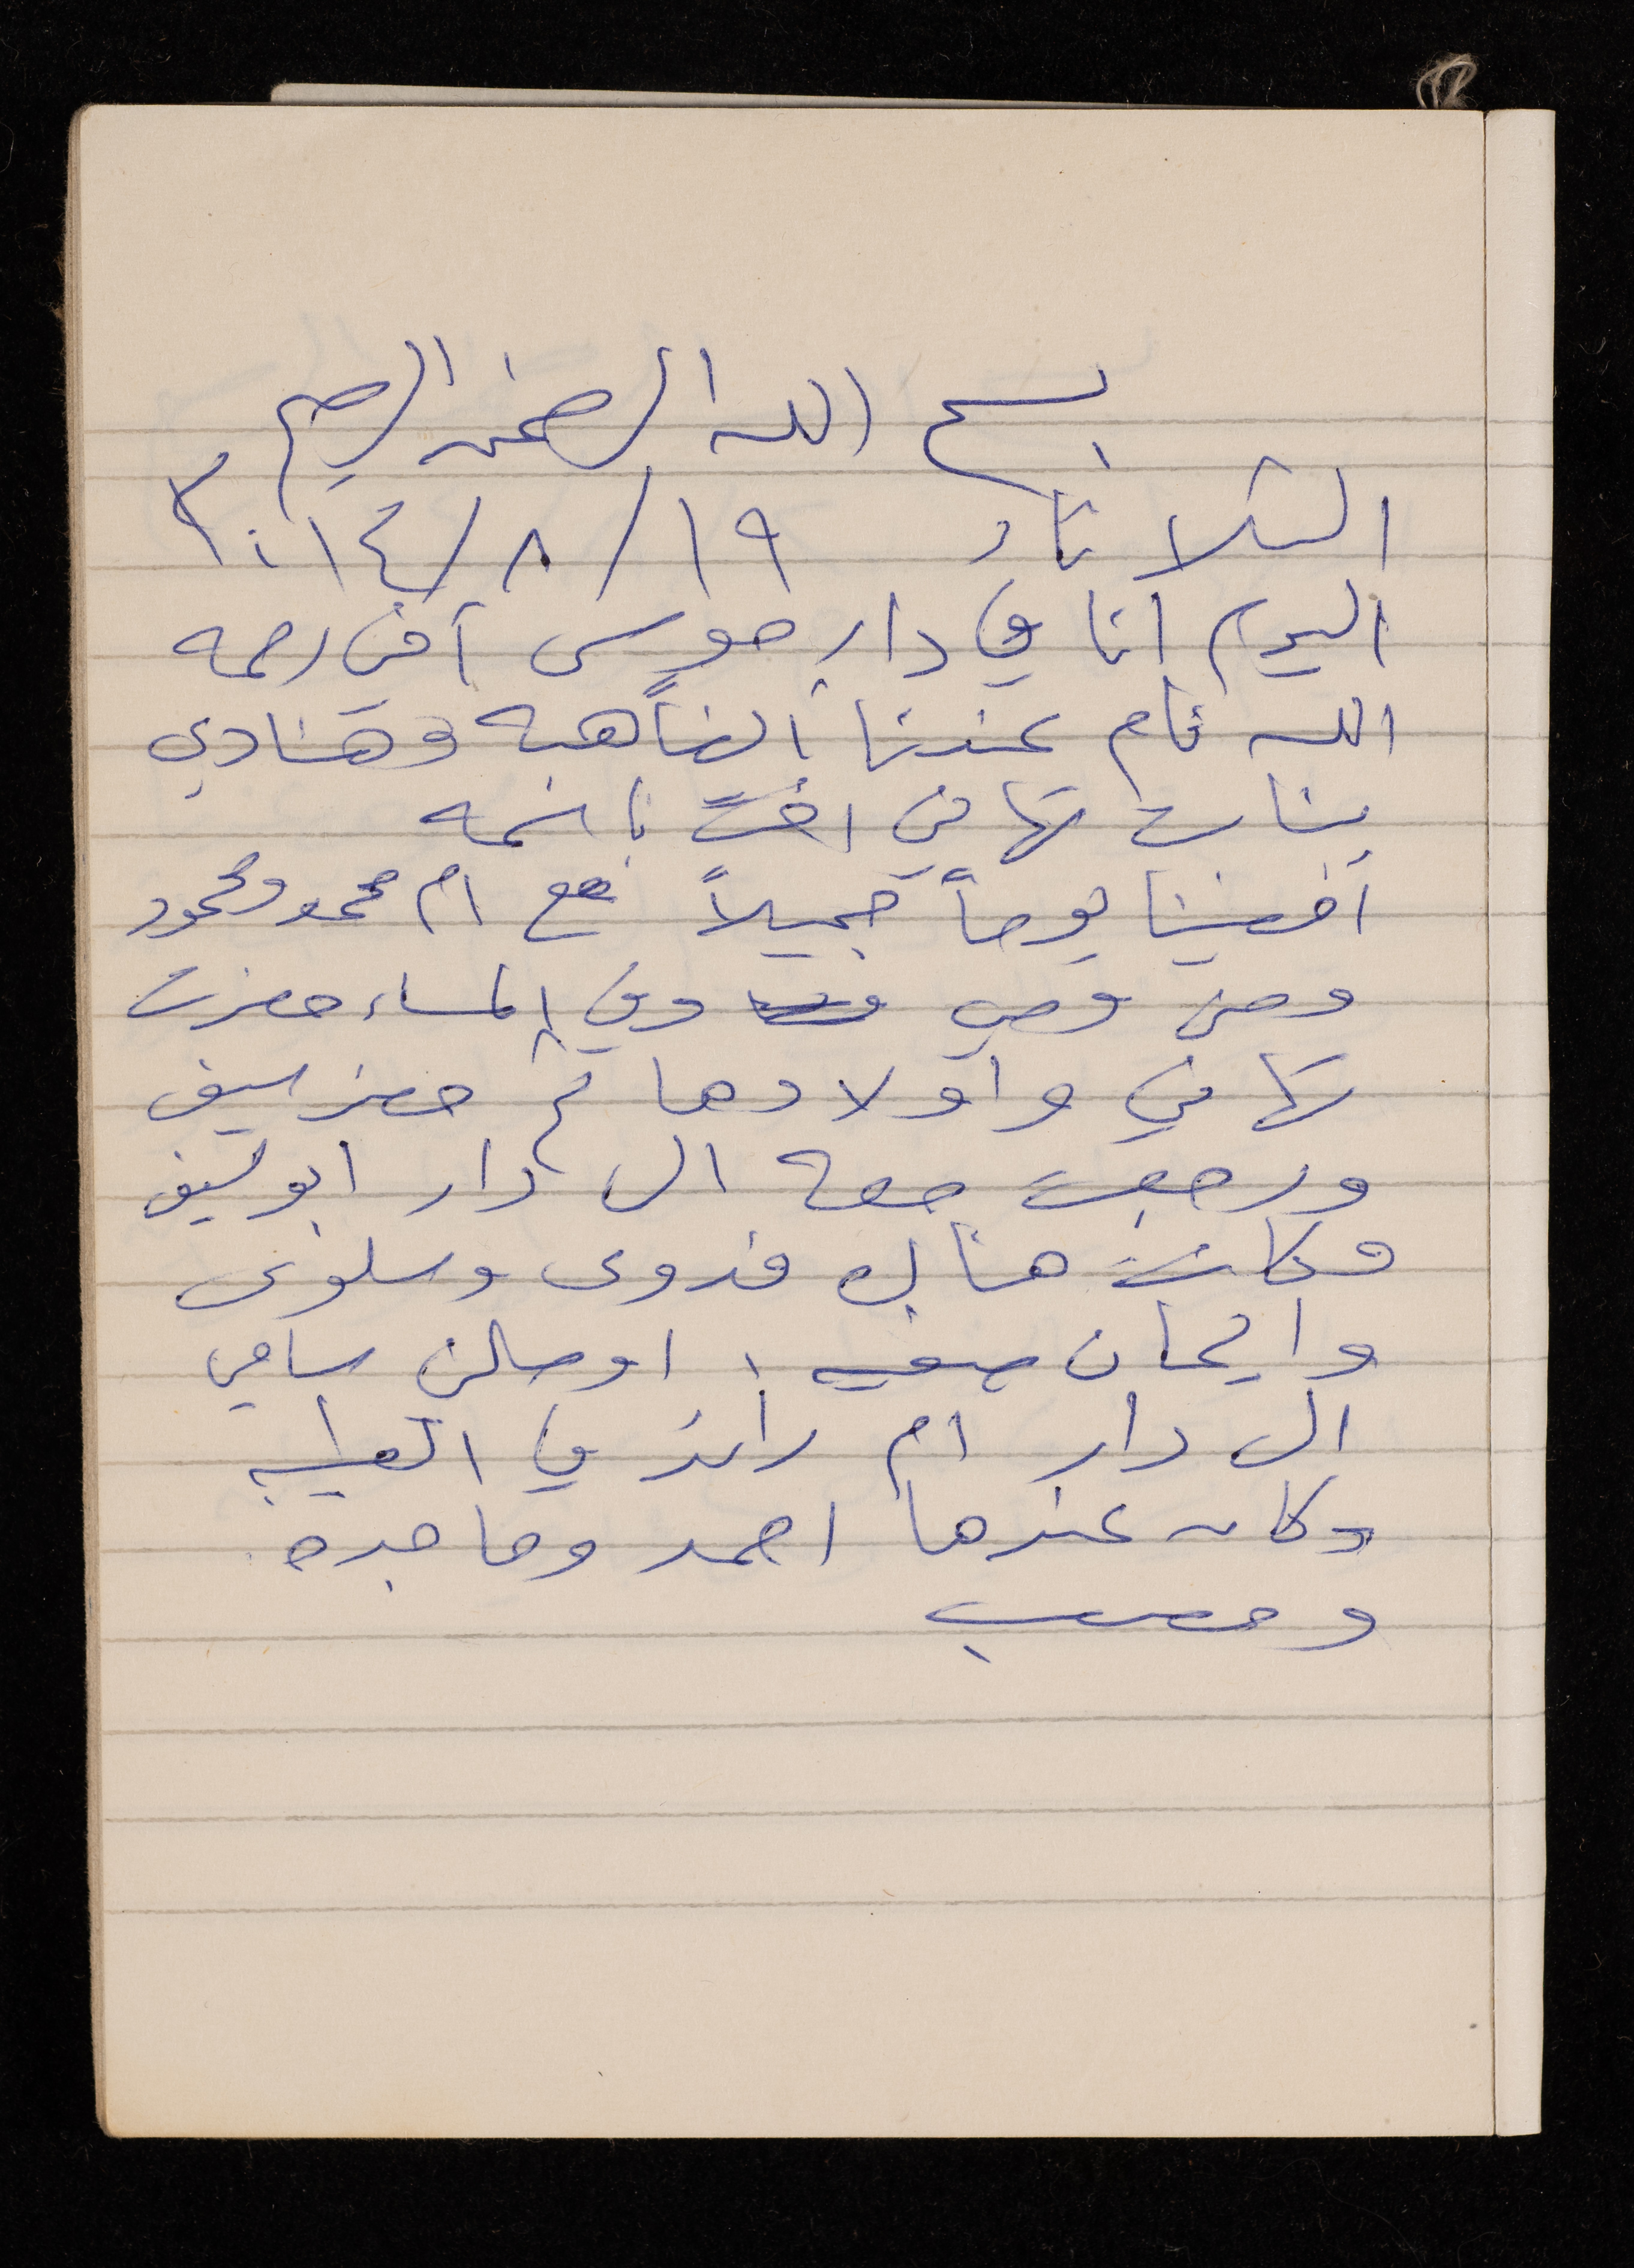 بسم الله الرحمن الرحيم
الثلاثاء ١٩/٨/٢٠١٤
اليوم انا في دار موسى آخي رحمه
الله نام عندنا ايضاً هبه وهنادي
بنات تهاني اخت باسمه
اقضينا يوماً جميلاً مع ام محمد ومحمود
ومي وفي المساء حضرت
تهاني واولادها ثم حضر سيف
ورجعت معه الى دار ابو سيف
وكانت هناك فدوى وسلوى
وايمان اوصلني سامي
الى دار ام رائد في الطيبه
وكان عندها احمد وماجده
ومصعب